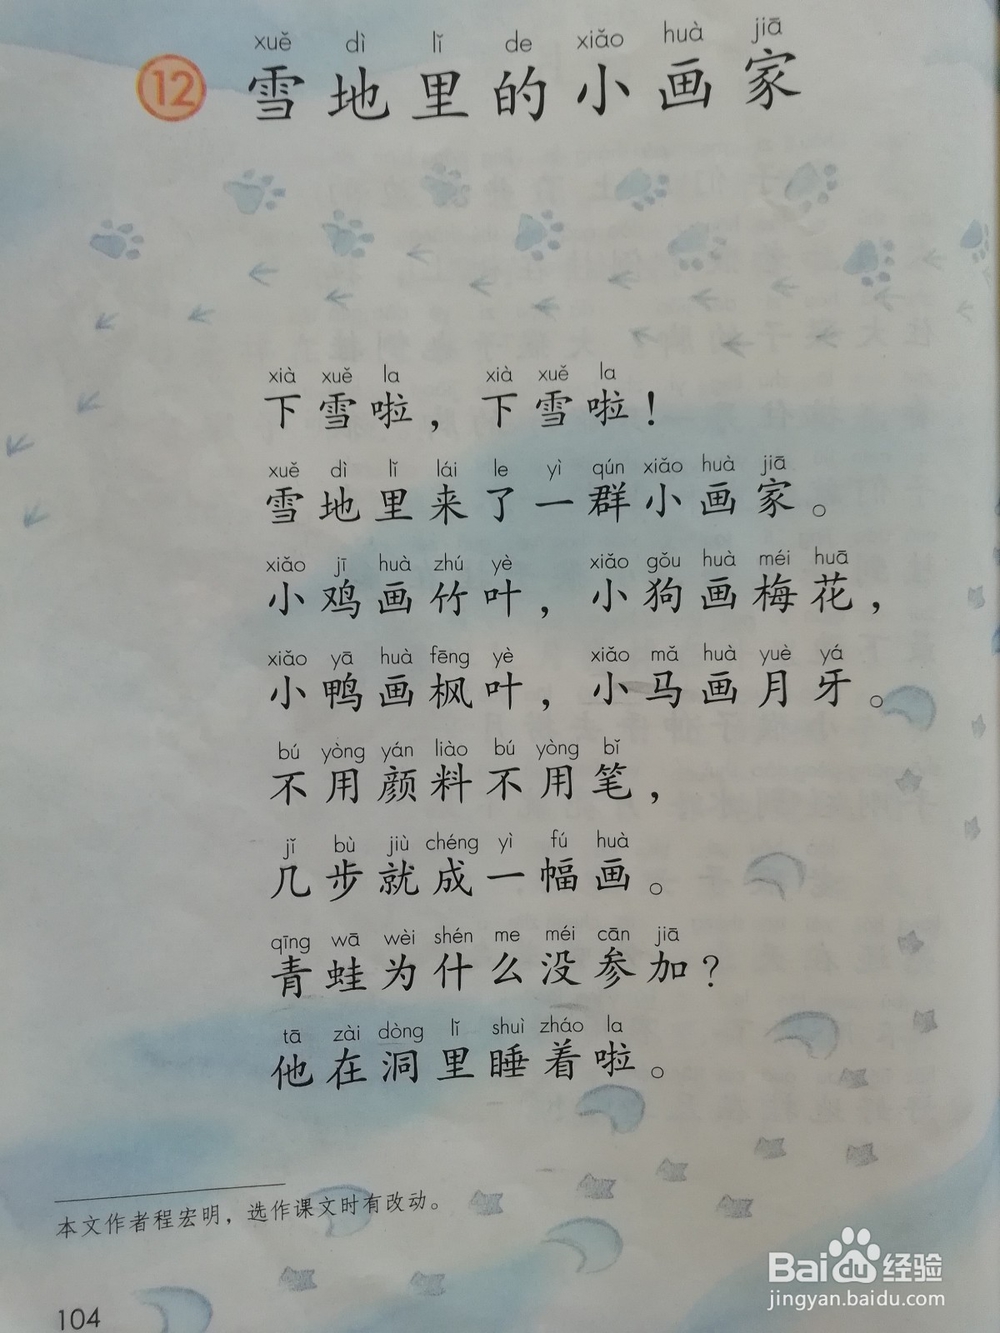 xuě dì lǐ de xiǎo huà jiā
12 雪地里的小画家
xià xuě la xià xuě la
下雪啦，下雪啦！
xuě dì lǐ lái le yì qún xiǎo huà jiā
雪地里来了一群小画家。
xiǎo jī huà zhú yè xiǎo gǒu huà méi huā
小鸡画竹叶，小狗画梅花，
xiǎo yā huà fēng yè xiǎo mǎ huà yuè yá
小鸭画枫叶，小马画月牙。
bú yòng yán liào bú yòng bǐ
不用颜料不用笔，
jǐ bù jiù chéng yì fú huà
几步就成一幅画。
qīng wā wèi shén me méi cān jiā
青蛙为什么没参加？
tā zài dòng lǐ shuì zháo la
他在洞里睡着啦。
本文作者程宏明，选作课文时有改动。
104
Baidu经验
jingyan.baidu.com